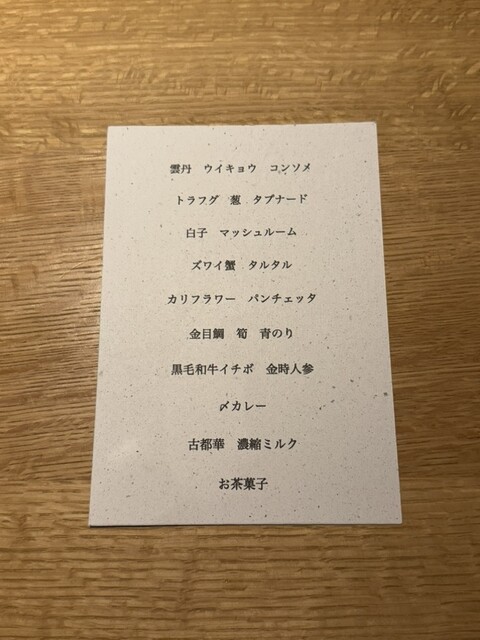 雲丹　ウイキョウ　コンソメ
トラフグ　葱　タプナード
白子　マッシュルーム
ズワイ蟹　タルタル
カリフラワー　パンチェッタ
金目鯛　筍　青のり
黒毛和牛イチボ　金時人参
〆カレー
古都華　濃縮ミルク
お茶菓子